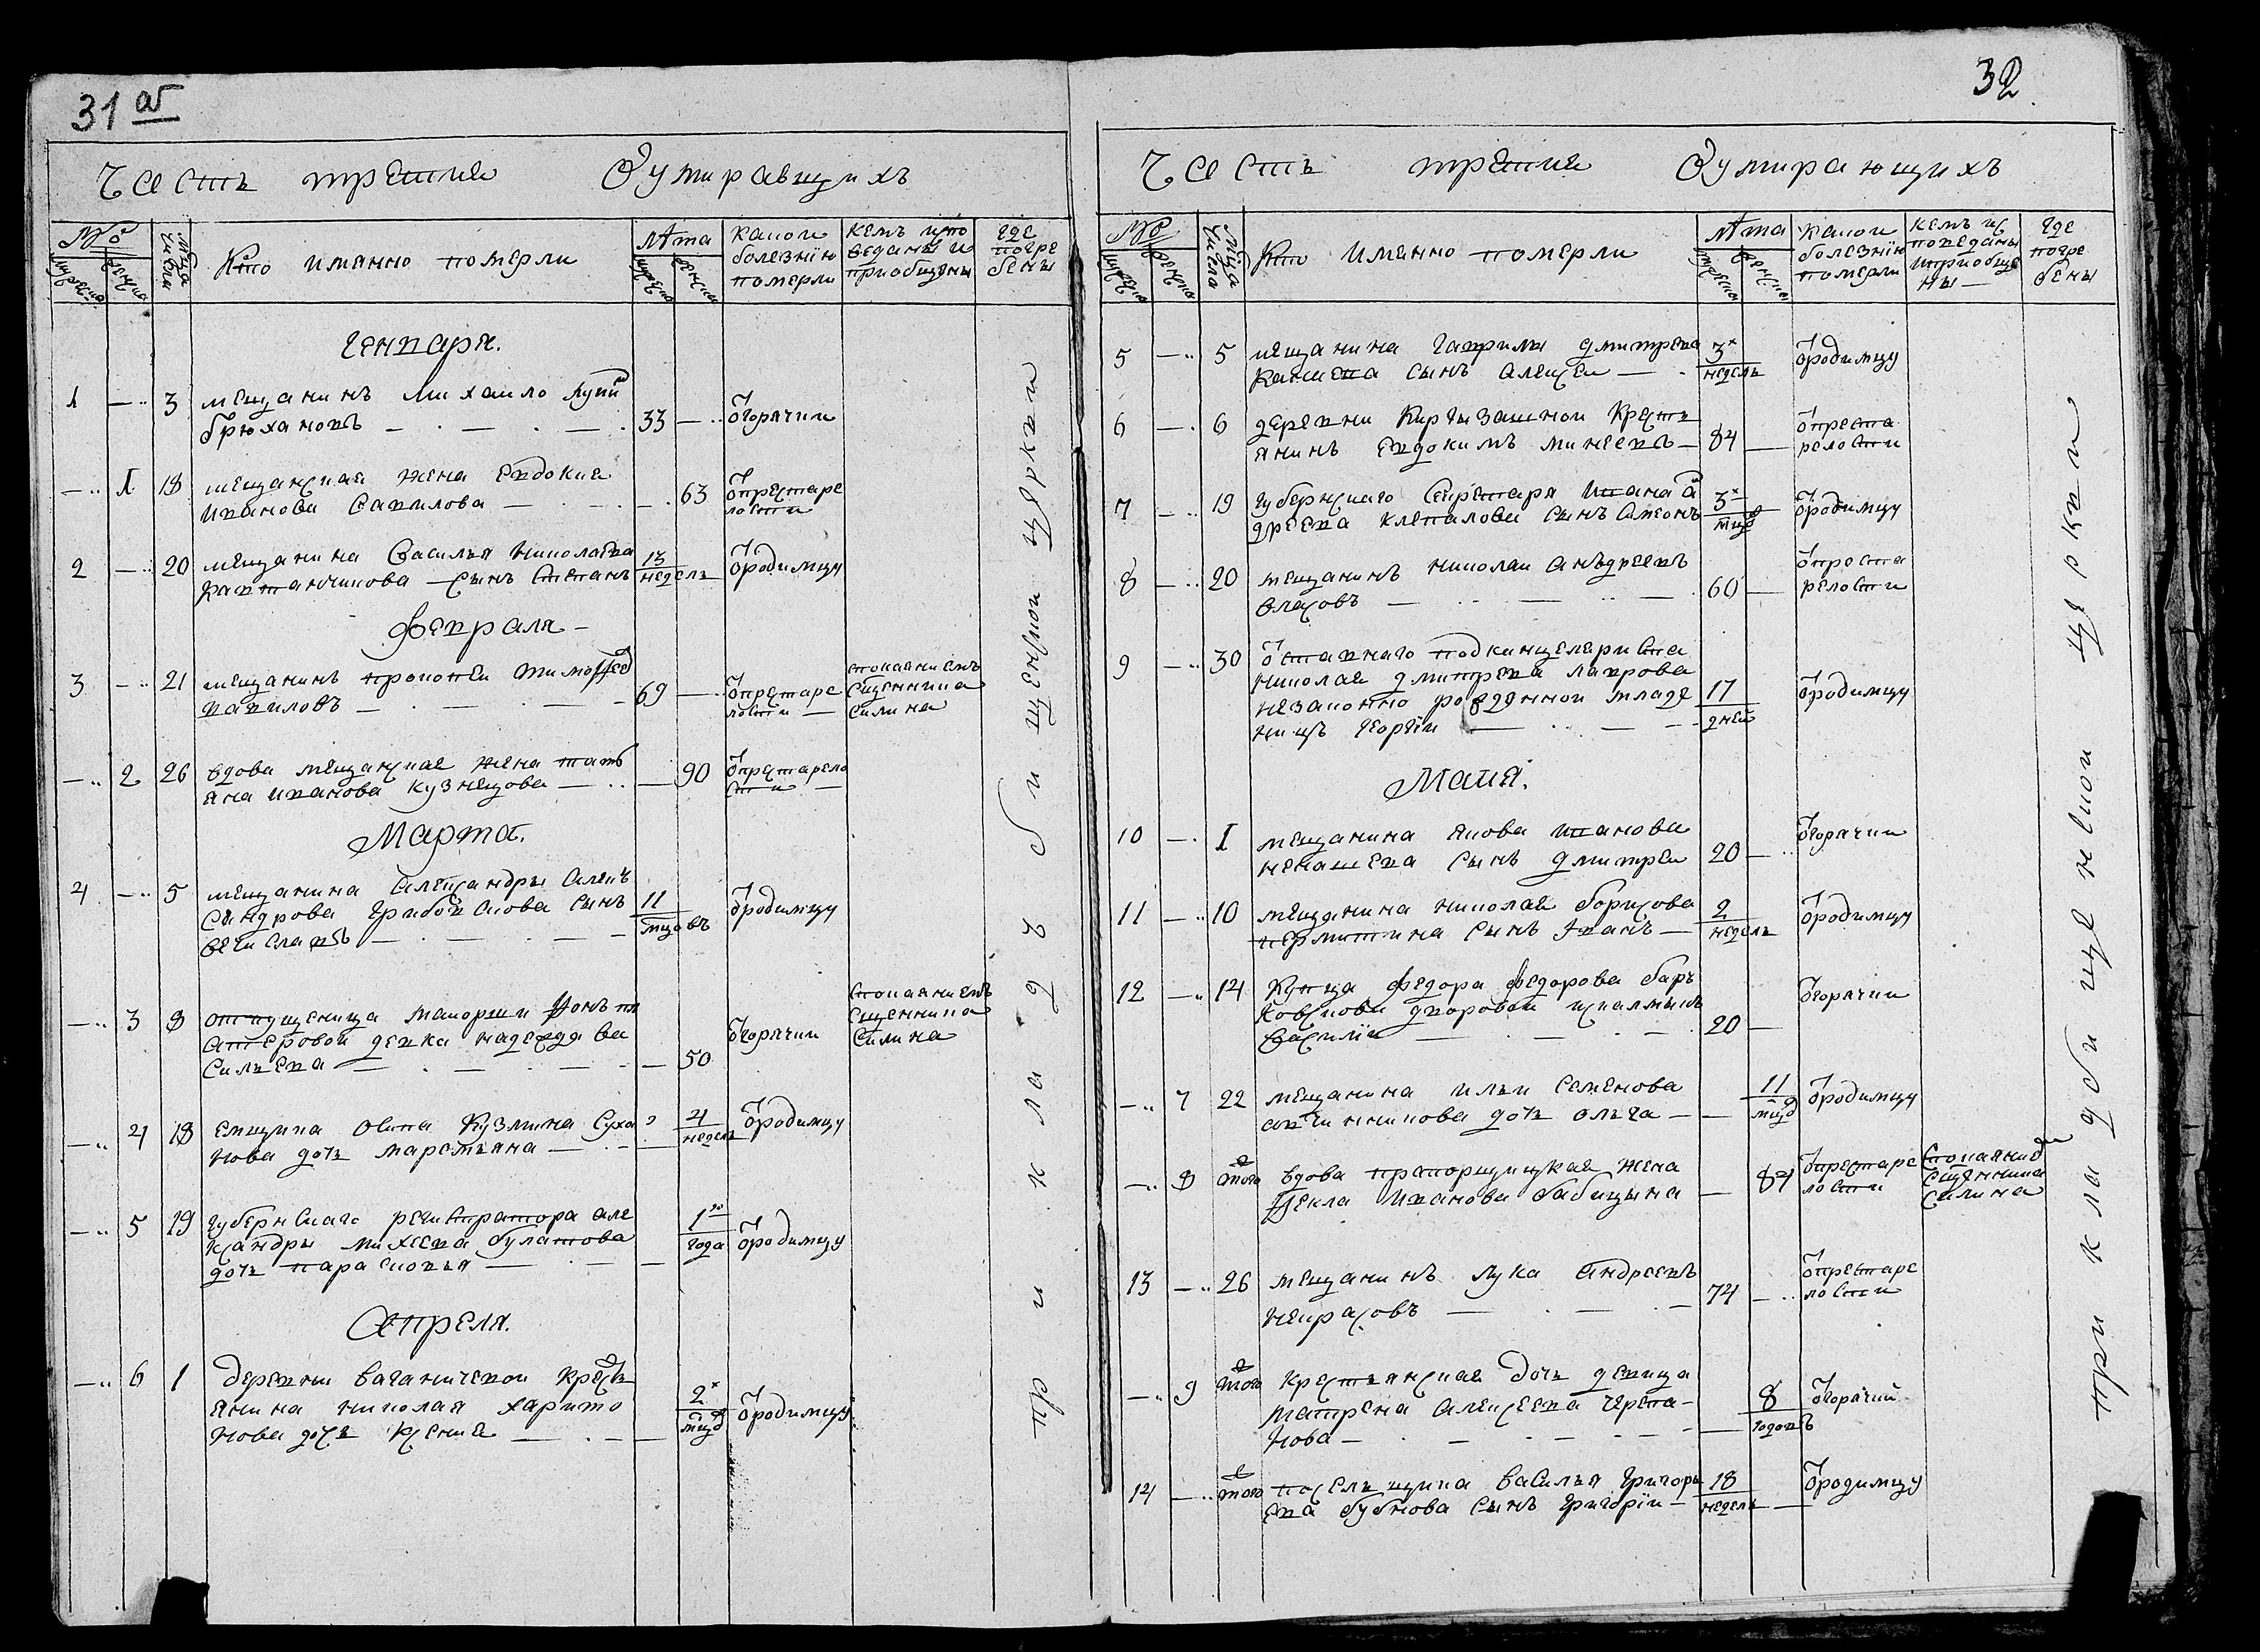 31 об
Часть третия О умиравщихъ
№
мужеска
женска
мсца
числа
Кто имянно померли
лѣта
мужеска
женска
какои
болезнїю
померли
кемъ испо
веданы и
приобщены
где
погре
бены
Генваря.
1 3 мещанинъ Михаило
Брюхановъ 33 Огорячки
1 18 мещанская жена Евдокия
Иванова Савилова 63 Опрестаре
лости
2 20 мещанина Василья Николаева
Кавтанчикова сынъ Степанъ 13
недель Ородимцу
Февраля
3 21 мещанинъ Прокопеи Тимофѣев
Вавиловъ 69 Опрестаре
лости
спокаяниемъ
Сщенника
Силина
2 26 вдова мещанская жена тать
яна Иванова Кузнецова 90 Опрестарело
сти
Марта.
4 5 мещанина Александры Алек
сандрова Грибоискова сынъ
Вечиславъ 11
мцовъ Ородимцу
3 8 отпущеница маиорши
девка надежда Ва
сильева 50 Огорячки
спокаяниемъ
Сщенника
Силина
4 18 Емщика Осипа Кузмина Суха
нова дочь Маремьяна 4
недель Ородимцу
5 19 губернскаго регистратора але
ксандры Михеева Булатова
дочь Парасковья 1го
года Ородимцу
Апреля.
6 1 деревни Ваганичевои крестъ
янина Николая Харито
нова дочь Ксения 2х
мцов Ородимцу
при кладбищенской церкви
32
Часть третия О умирающихъ
№
мужеска
женска
мсца
числа
Кто имянно померли
лѣта
мужеска
женска
какои
болезнїю
померли
кемъ ис
поведаны
и приобще
ны
где
погре
бены
5 5 мещанина Гаврилы Дмитрева
Качиева сынъ Алексеи 3х
недель Ородимцу
6 6 деревни Киргызашнои кресть
янинъ Евдокимъ Минеевъ 84 Опреста
релости
7 19 губернскаго Секретаря Ивана Ан
дреева Клепалова сынъ Симеонъ 3х
мцов Ородимцу
8 20 мещанинъ Николаи Анъдреевъ
Власовъ 60 Опреста
релости
9 30 Отставнаго подканцелериста
Николая Дмитрева Лаврова
незаконно рожденной младе
ницъ Георгїи 17
дней Ородимцу
Маия.
10 1 мещанина Якова Иванова
Ненашева сынъ Дмитреи 20 Огорячки
11 10 мещанина Николая Борисова
Пермитина сынъ Иванъ 2
недель Ородимцу
12 14 Купца Федора Федорова Барь
ковскова дворовой
Василїи 20 Огорячки
7 22 мещанина Ильи Семенова
дочь Ольга 11
мцов Ородимцу
8 того вдова прапорщицкая жена
Фекла Иванова Бабицына 84 Опрестаре
лости
Спокаяние
Сщенника
Силина
13 26 мещанинъ Лука Андреевъ
Некрасовъ 74 Опрестаре
лости
9 того крестьянская дочь девица
Матрена Алексеева Черепа
нова 8
годовъ Огорячки
14 того посельщика Василья Григорь
ева Бубнова сынъ Григорїи 18
недель Ородимцу
при кладбищенской церкви